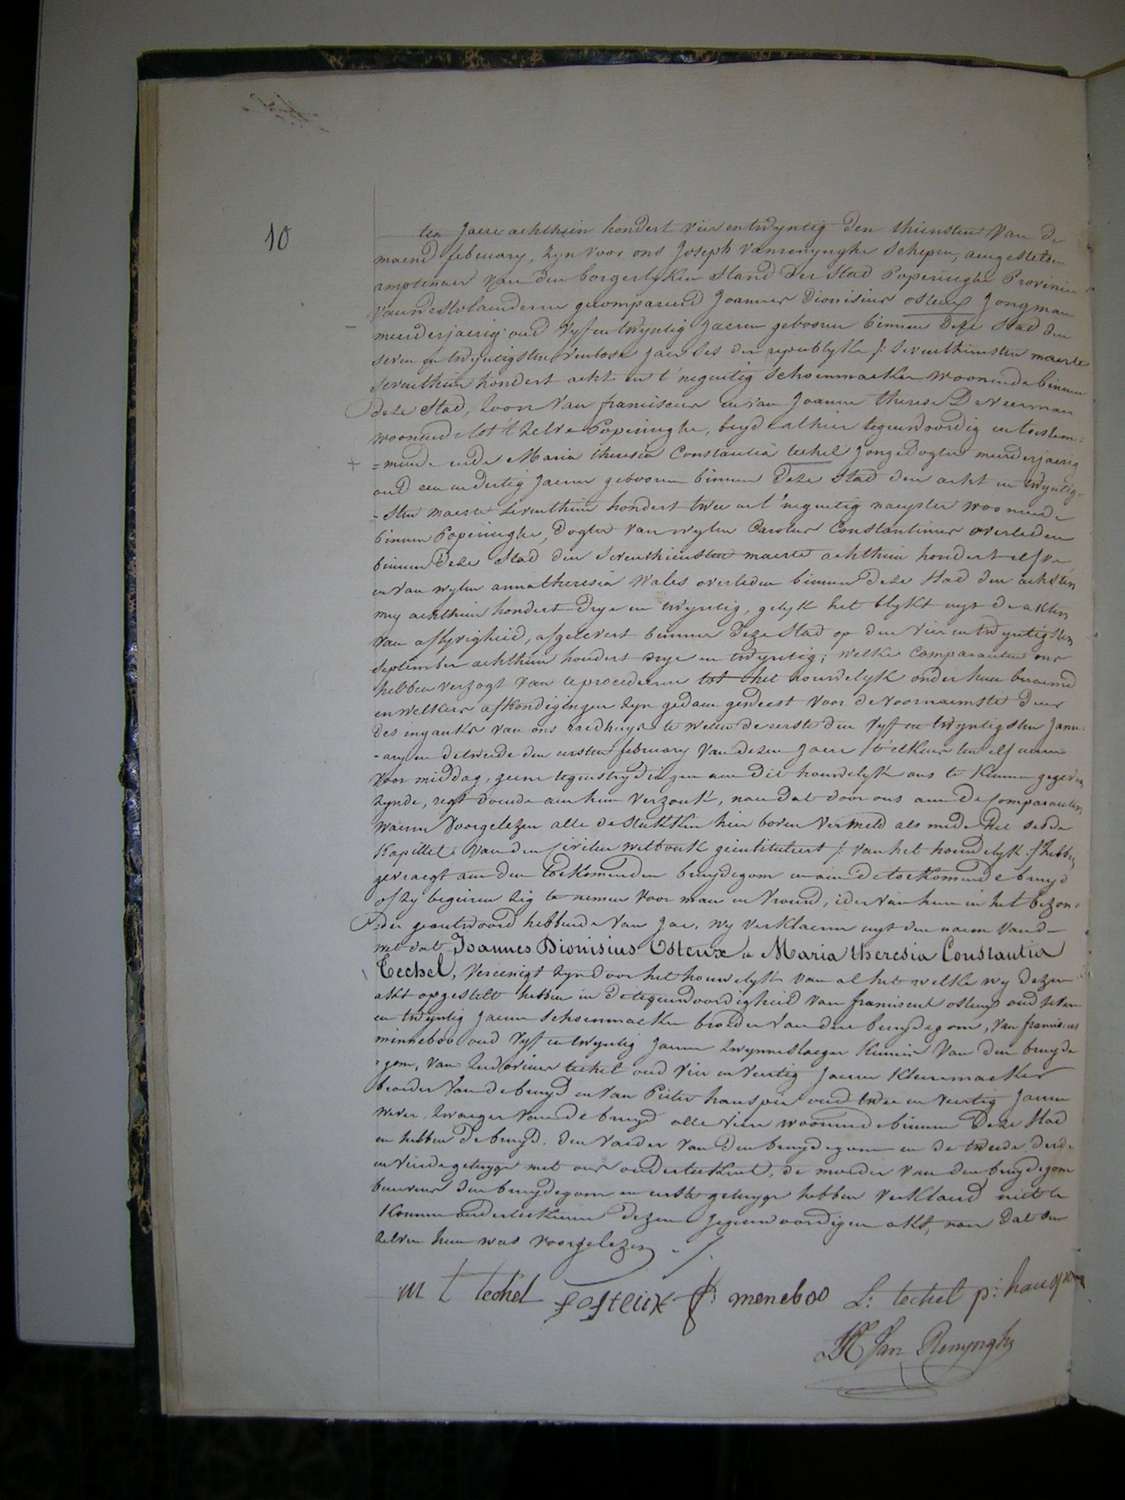 10
ten Jaere achthien hondert vier en twyntig den thiensten van de
maend february, zyn voor ons Joseph Vanrenynghe schepen, aengestelden
amptenaer van den borgerlyken stand der Stad Poperinghe Provincie
van westvlaenderen gecompareerd Joannes Dionisius osteux Jongman
meerderjaerig oud vyf en twyntig jaeren gebooren binnen deze stad den
seven en twyntigsten ventose jaer ses der republyke /: seventhiensten maerte
seventhien hondert acht en t'negentig schoenmaeker woonende binnen
deze stad, zoon van franciscus en van Joanna therese De Veerman
woonende tot t zelve Poperinghe, beyde alhier tegenwoordig en toestem-
=mende ende Maria theresia Constantia techel jongedogter meerderjaerig
oud een en dertig jaeren gebooren binnen deze stad den acht en twyntig-
-sten maerte seventhien hondert twee en t'negentig naeyster woonende
binnen Poperinghe, dogter van wylen Carolus Constantinus overleden
binnen deze stad den seventhiensten maerte achthien hondert elf en
en van wylen anna theresia Wales overleden binnen deze stad den achsten
mey achthien hondert drye en twyntig, gelyk het blykt uyt de akten
van aflyvigheid, afgelevert binnen deze stad op den vier en twyntigsten
september achthien hondert drye en twyntig; welke comparanten ons
hebben verzogt van te procederen tot het houwelyk onder hun beraemd
en welkers afkondigingen zyn gedaen geweest voor de voornaemste deur
des ingancks van ons raedhuys te weten de eerste den vyf en twyntigsten janu-
-ary en de tweede den eersten february van dezen jaere / telkens ten elf uren
voor middag, geene tegenstrydingen aen dit houwelyk ons te kennen gegeven
zynde, regt doende aen hun verzoek, naer dat door ons aen de comparanten
waeren voorgelezen alle de stukken hier boven vermeld als mede het sesde
kapittel van den Civilen wetboek geintituleert /: van het houwelyk :/ hebben
gevraegt aen den toekomenden bruydegom en aen de toekomende bruyd
of zy begeeren zig te nemen voor man en vrouw, ider van hun in het bezon-
=der geantwoord hebbende van Jae, wy verklaeren uyt den naem van de
wet dat Joannes Dionisius Osteux en Maria theresia Constantia
Techel, vereenigt zyn door het houwelyk van al het welke wy dezen
akt opgestelt hebben in de tegenwoordigheid van franciscus osteux oud seven
en twyntig jaeren schoenmaeker broeder van den bruydegom, van franciscus
minneboo oud vyf en twyntig jaeren zwynneslaeger kosin van den bruyde
=gom, van Ludovicus techel oud vier en veertig jaeren kleermaeker
broeder van de bruyd en van Pieter hauspie oud twee en veertig jaeren
wever, zwaeger van de bruyd alle vier woonende binnen deze stad
en hebben de bruyd, den vaeder van den bruydegom en de tweede derde
en vierde getuyge met ons onderteekent, de moeder van den bruydegom
benevens den bruydegom en eerste getuyge hebben verklaerd niet te
konnen onderteekenen dezen jegenwoordigen akt, naer dat den
zelven hun was voorgelezen ./.
m t techel f osteux f: meneboo L: techel p: hauspie
JH Van Renynghe